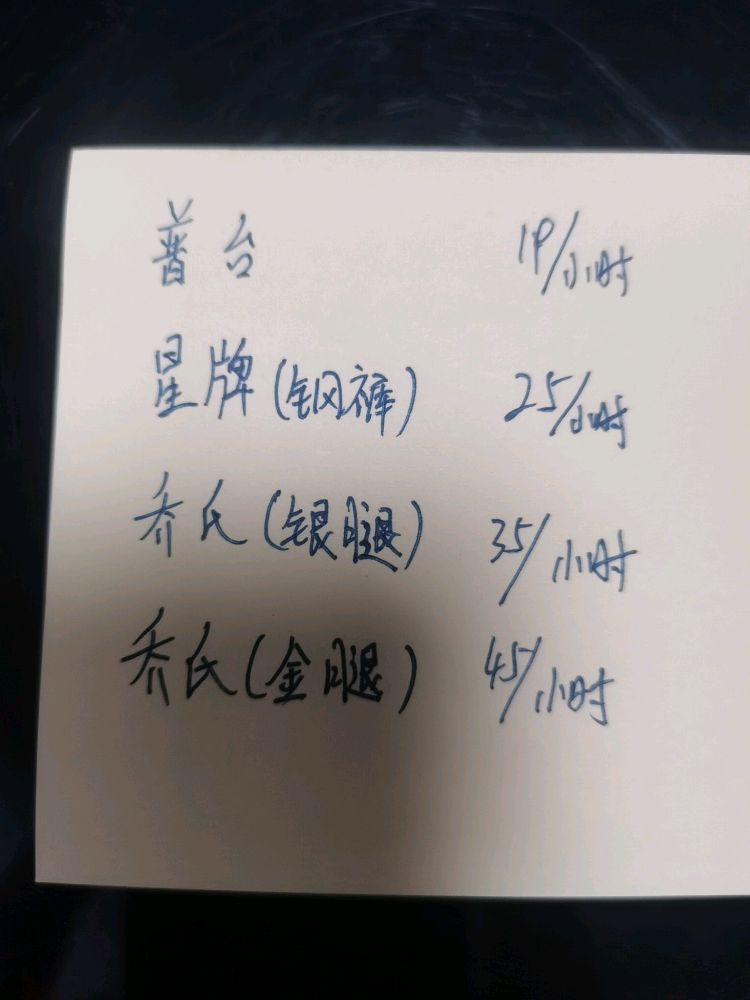 普台 19/小时
星牌(钢裤) 25/小时
乔氏(银腿) 35/小时
乔氏(金腿) 45/小时